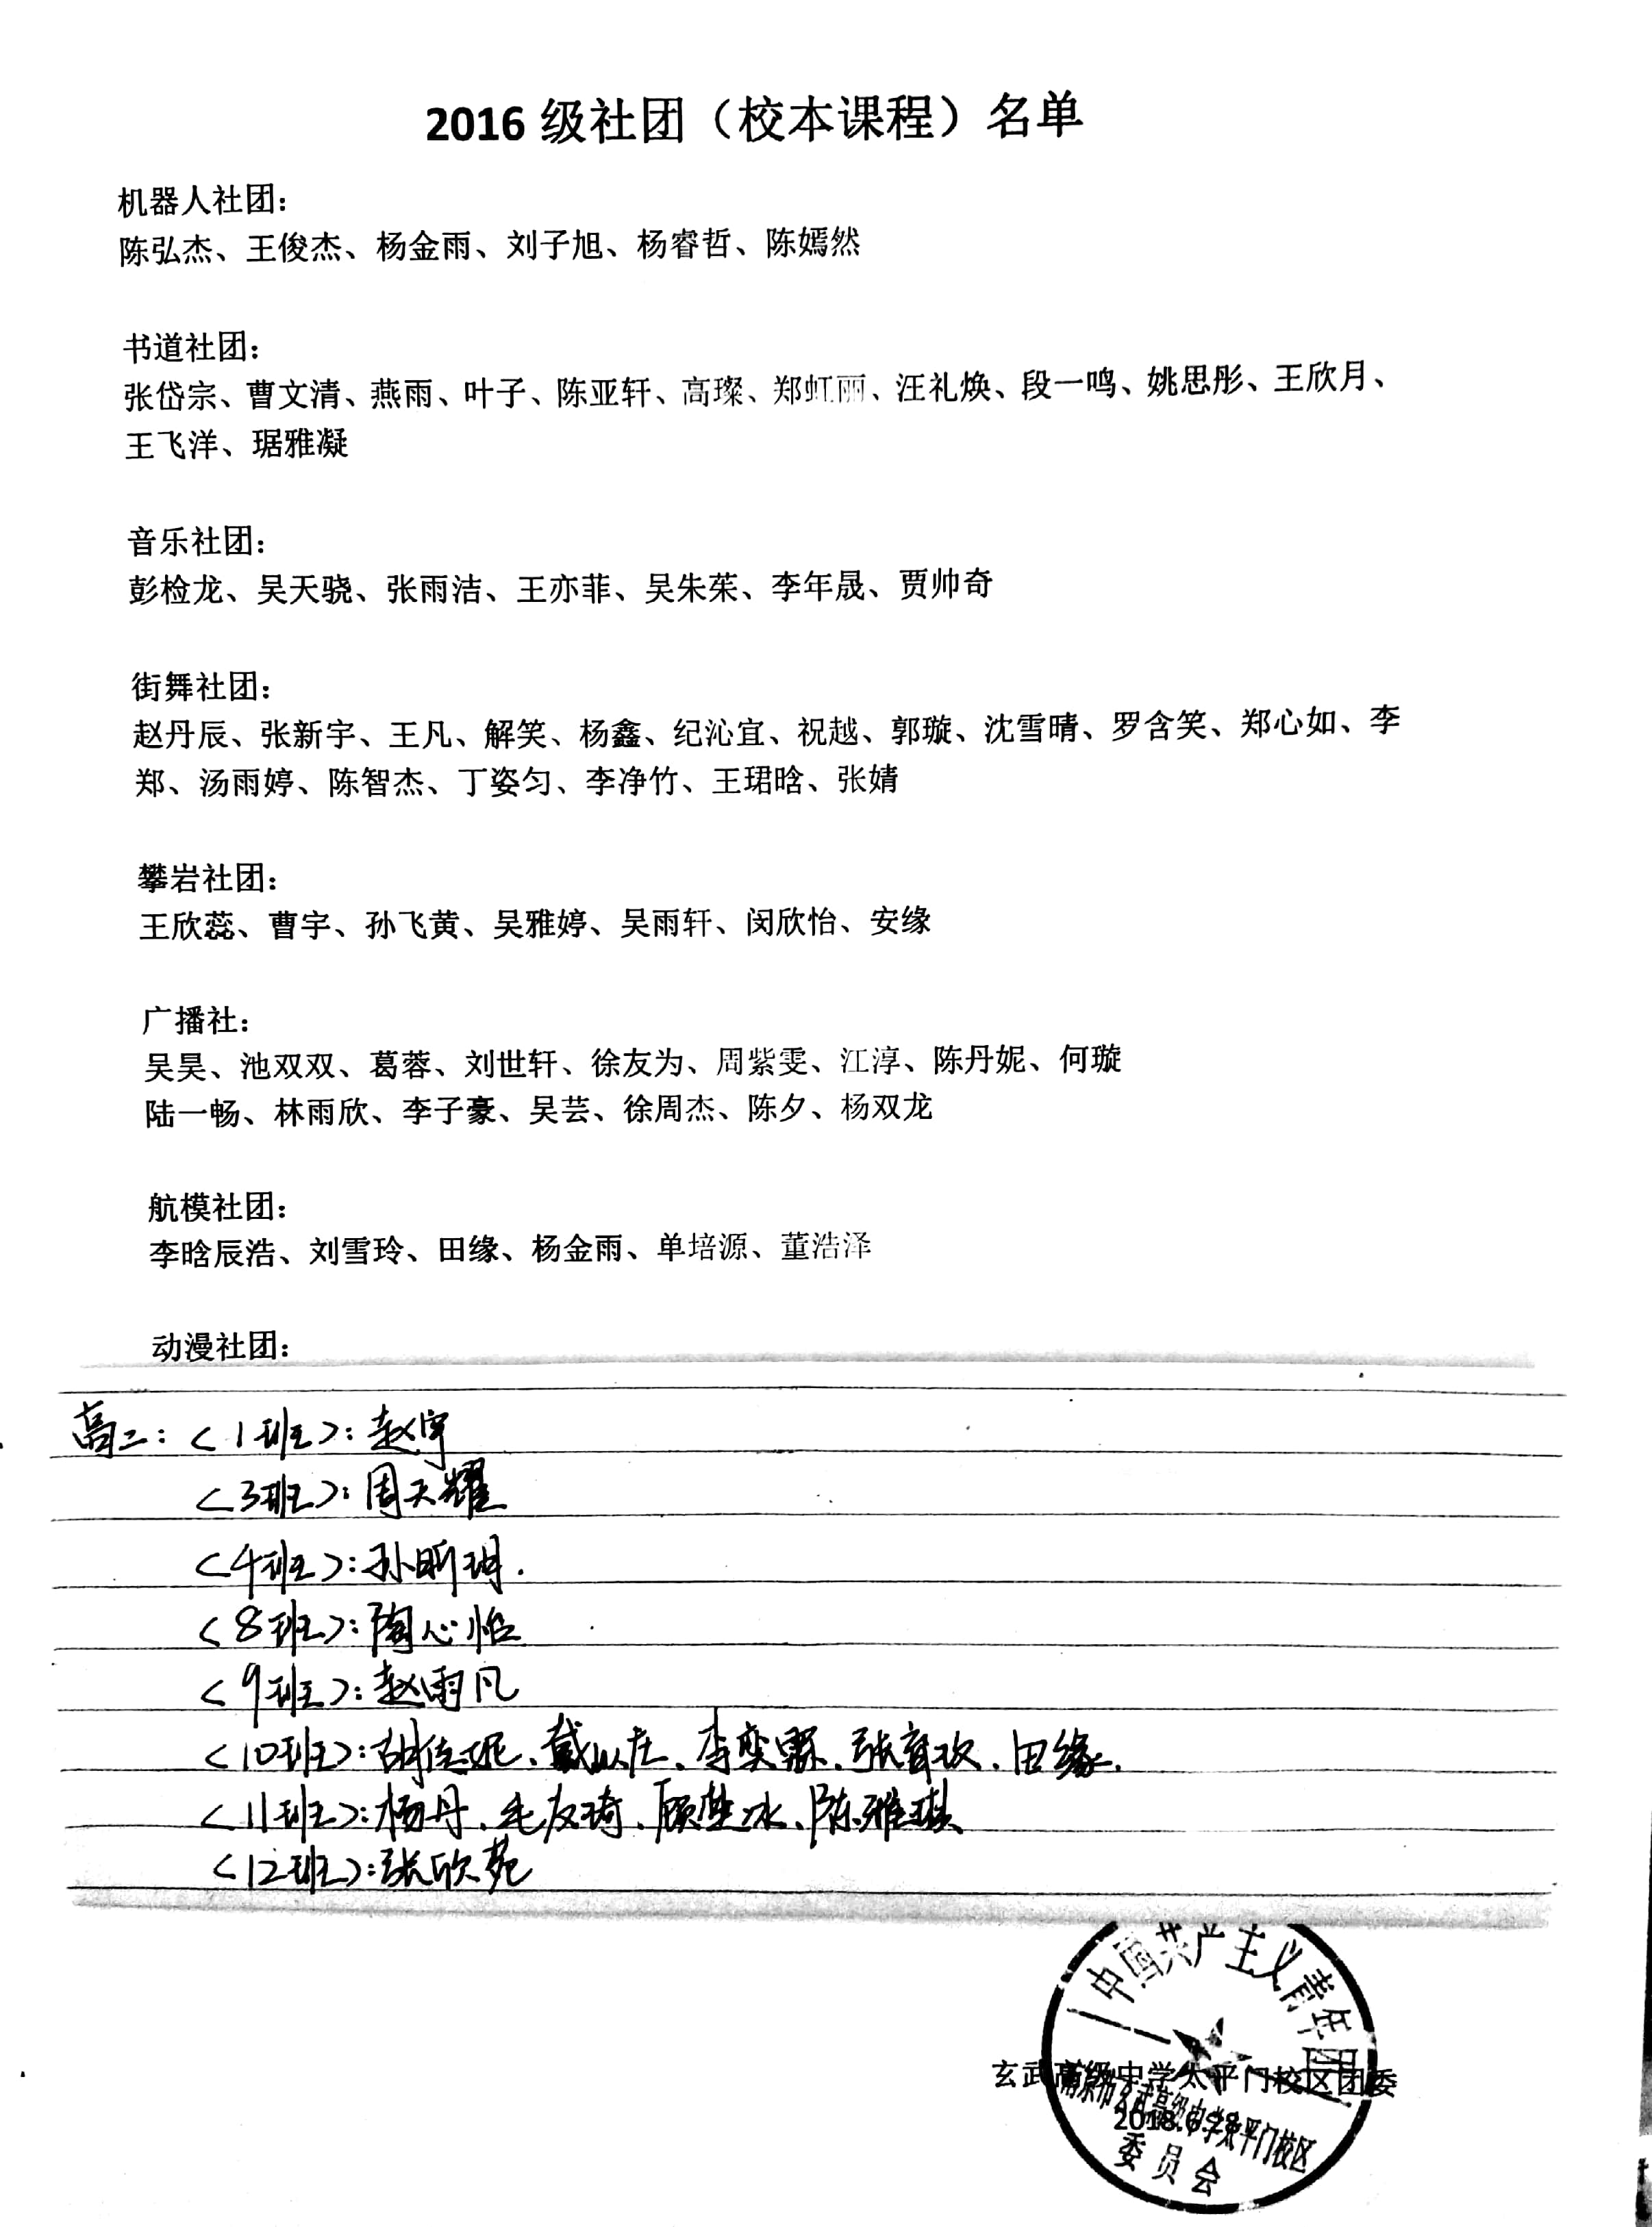 2016 级社团（校本课程）名单
机器人社团：
陈弘杰、王俊杰、杨金雨、刘子旭、杨睿哲、陈嫣然
书道社团：
张岱宗、曹文清、燕雨、叶子、陈亚轩、高璨、郑虹丽、汪礼焕、段一鸣、姚思彤、王欣月、
王飞洋、琚雅凝
音乐社团：
彭检龙、吴天骁、张雨洁、王亦菲、吴朱茱、李年晟、贾帅奇
街舞社团：
赵丹辰、张新宇、王凡、解笑、杨鑫、纪沁宜、祝越、郭璇、沈雪晴、罗含笑、郑心如、李
郑、汤雨婷、陈智杰、丁姿匀、李净竹、王珺晗、张婧
攀岩社团：
王欣蕊、曹宇、孙飞黄、吴雅婷、吴雨轩、闵欣怡、安缘
广播社：
吴昊、池双双、葛蓉、刘世轩、徐友为、周紫雯、江淳、陈丹妮、何璇
陆一畅、林雨欣、李子豪、吴芸、徐周杰、陈夕、杨双龙
航模社团：
李晗辰浩、刘雪玲、田缘、杨金雨、单培源、董浩泽
动漫社团：
高二：<1班>：赵宇
<3班>：周天耀
<4班>：孙昕玥.
<8班>：陶心怡
<9班>：赵雨凡
<10班>：胡佳妮、李奕霖、田缘.
<11班>：杨丹、毛友琦、顾楚冰、陈雅琪
<12班>：张欣苑
中国共产主义青年团
玄武高级中学太平门校区团委
南京市玄武高级中学太平门校区
2018.6.28
委员会